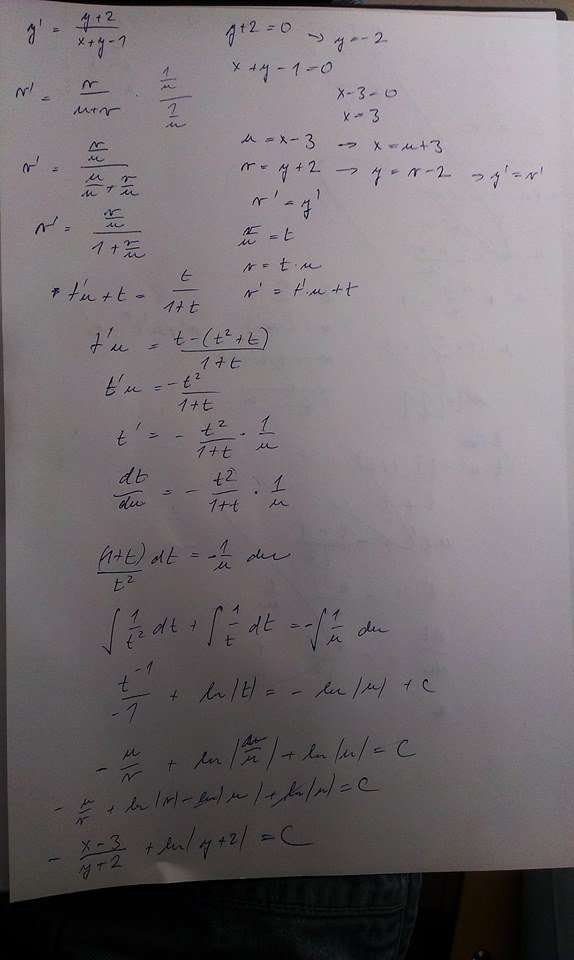 y' = (y+2)/(x+y-1)
y+2=0 → y=-2
x+y-1=0
x-3=0
x=3
v' = v/(u+v) · (1/u)/(1/u)
u = x-3 → x=u+3
v' = (v/u)/(u/u + v/u)
v = y+2 → y=v-2 → y'=v'
v' = y'
v' = (v/u)/(1+v/u)
v/u = t
v = t·u
* t'u+t = t/(1+t)
v' = t'·u+t
t'u = (t-(t²+t))/(1+t)
t'u = -t²/(1+t)
t' = - t²/(1+t) · 1/u
dt/du = - t²/(1+t) · 1/u
(1+t)/t² dt = -1/u du
∫ 1/t² dt + ∫ 1/t dt = -∫ 1/u du
t⁻¹/-1 + ln|t| = - ln|u| + C
- u/v + ln|v/u| + ln|u| = C
- u/v + ln|v| - ln|u| + ln|u| = C
- (x-3)/(y+2) + ln|y+2| = C